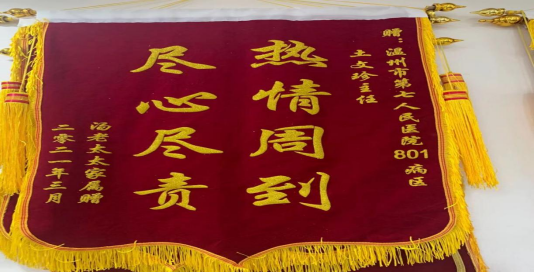 赠：温州市第七人民医院801病区
王文珍主任
热情周到
尽心尽责
汤老太太家属赠
二零二一年三月